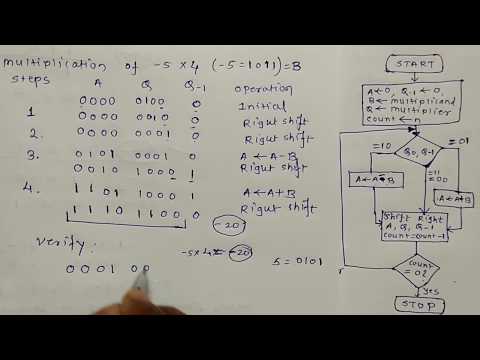 multiplication of -5 x 4 (-5 = 1011) = B
steps A Q Q-1 operation
0000 0100 0 Initial
1 0000 0010 0 Right shift
2. 0000 0001 0 Right shift
3. 0101 0001 0 A ← A-B
0010 1000 1 Right shift
4. 1101 1000 1 A ← A+B
1110 1100 0 Right shift
-20
Verify:
-5 x 4 = -20
5 = 0101
0001 00
START
A ← 0, Q-1 ← 0,
B ← multiplicand
Q ← multiplier
count ← n
=10
Q0, Q-1
=01
=11
=00
A ← A-B
A ← A+B
Shift Right
A, Q, Q-1
count = count-1
count
= 0?
yes
STOP